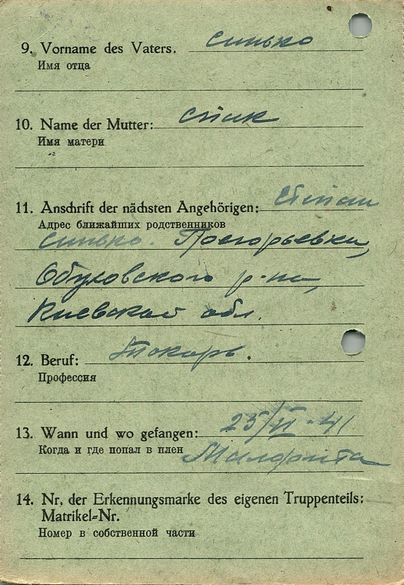 9. Vorname des Vaters. Синько
Имя отца
10. Name der Mutter:
Имя матери
11. Anschrift der nächsten Angehörigen: Степан
Адрес ближайших родственников
Синько. Григорьевка,
Обуховского р-на,
Киевской обл.
12. Beruf: Токарь.
Профессия
13. Wann und wo gefangen: 25/VI-41
Когда и где попал в плен Малорита
14. Nr. der Erkennungsmarke des eigenen Truppenteils:
Matrikel=Nr.
Номер в собственной части